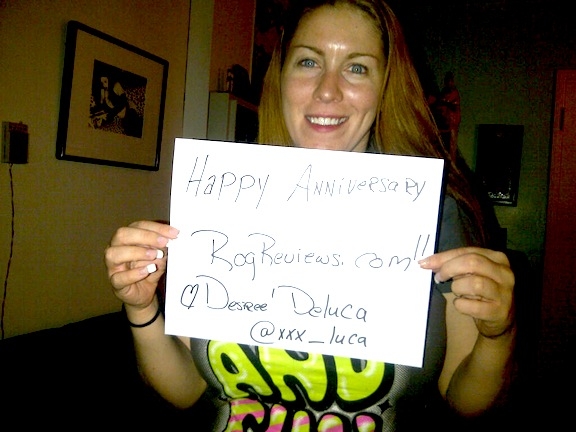 Happy Anniversary
RogReviews.com!!
♡ Desree' Deluca
@xxx_luca
AND